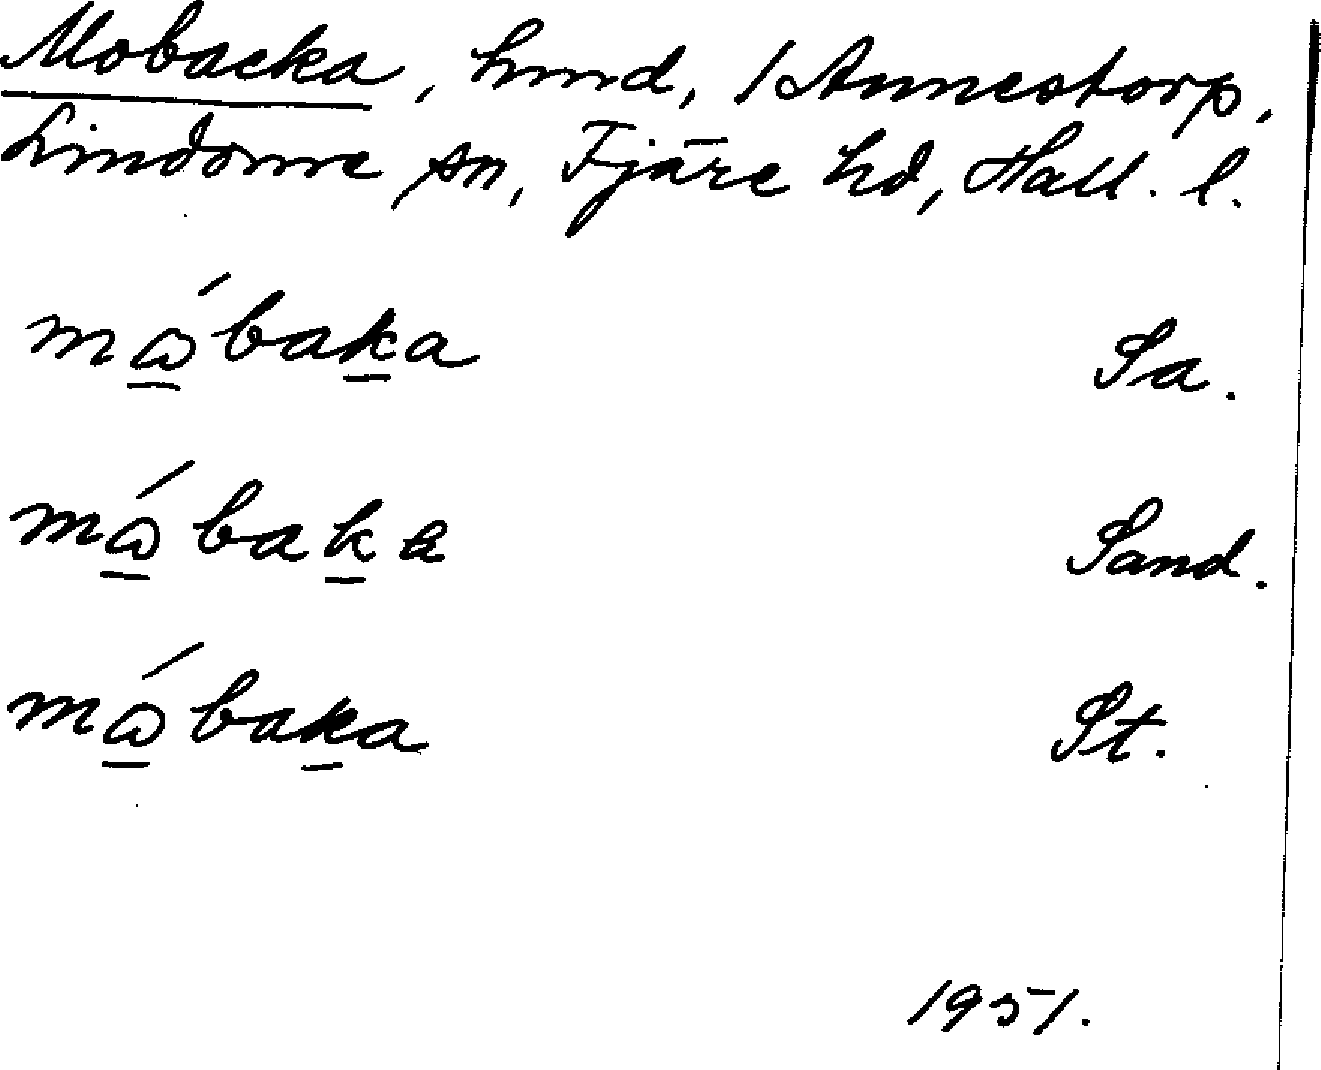 Mobacka, hmd, 1 Annestorp,
Lindome sn, Fjäre hd, Hall. l.
mɷ́baka Sa.
mɷ́baka Sand.
mɷ́baka St.
1951.